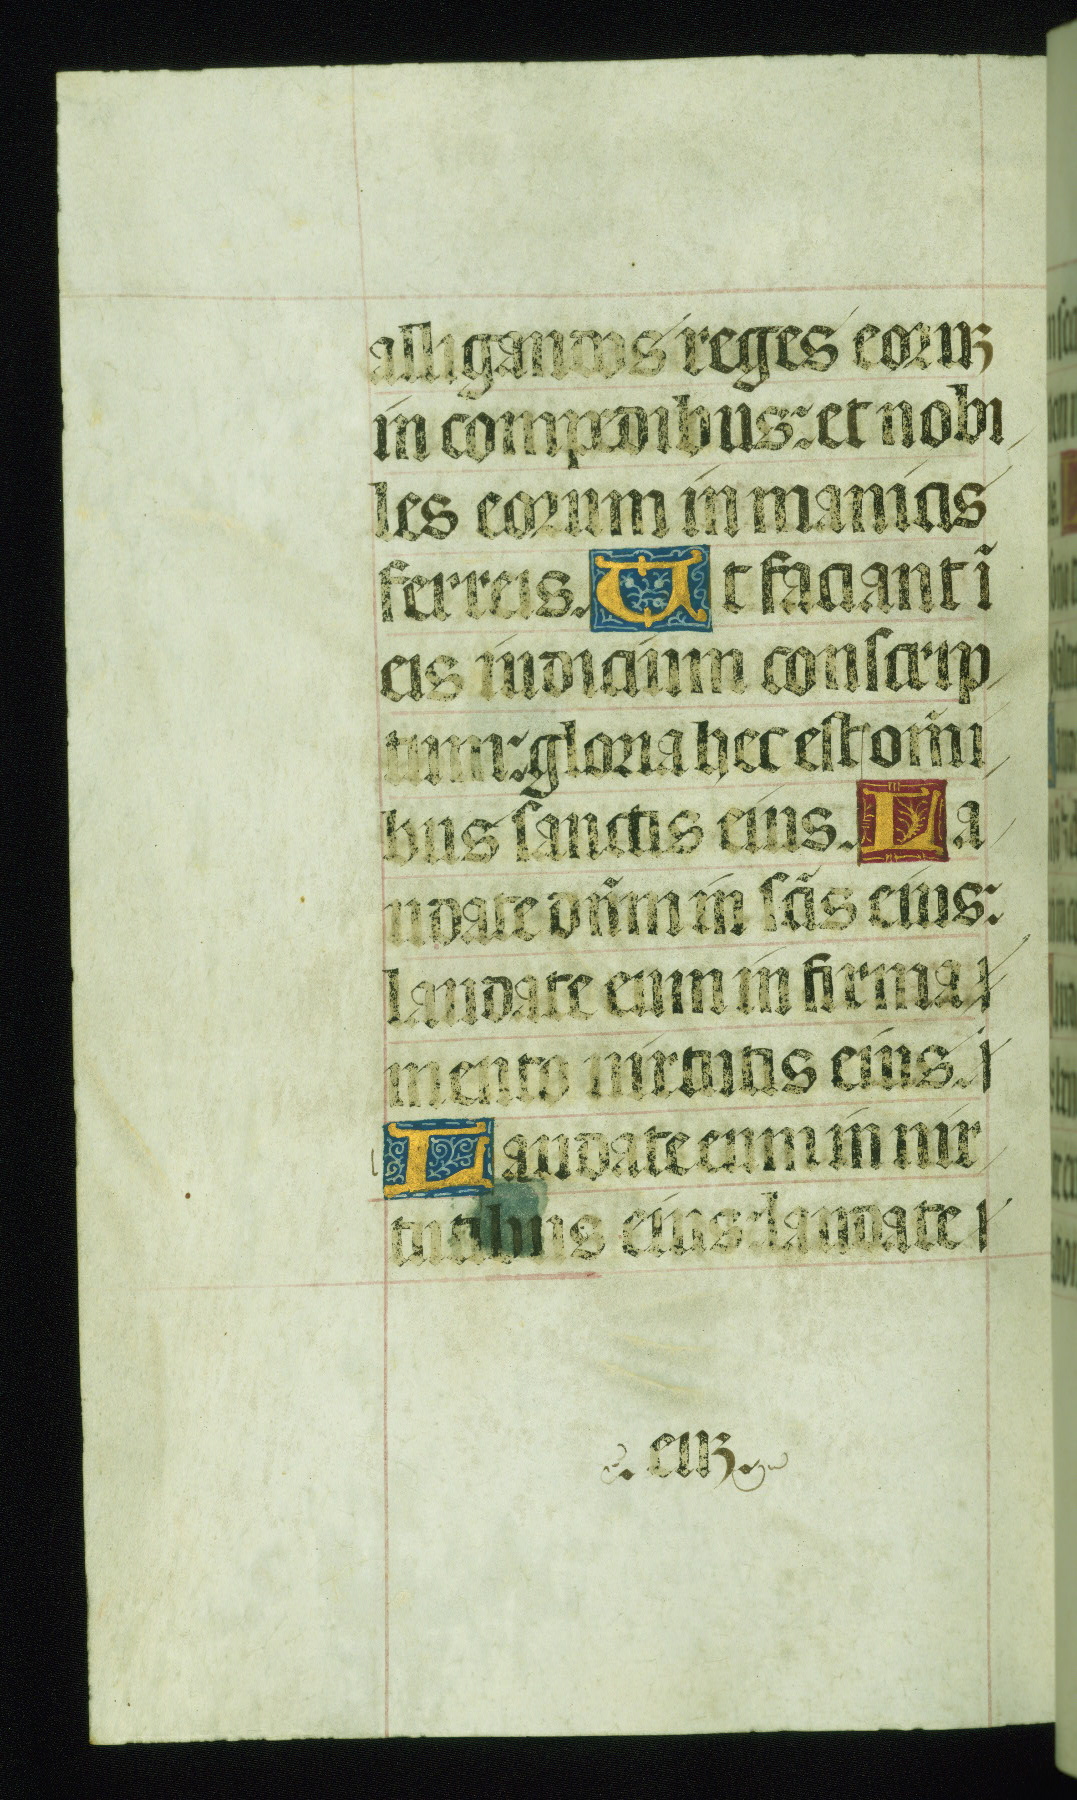 alligandos reges eoruꝫ
in compedibus: et nobi
les eorum in manicis
ferreis. Ut faciant ī
eis iudicium conscrip
tum: gloria hec est om̄i
bus sanctis eius. La
udate dn̄m in sc̄is eius:
laudate eum in firma
mento uirtutis eius.
Laudate eum in uir
tutibus eius: laudate
. euꝫ .